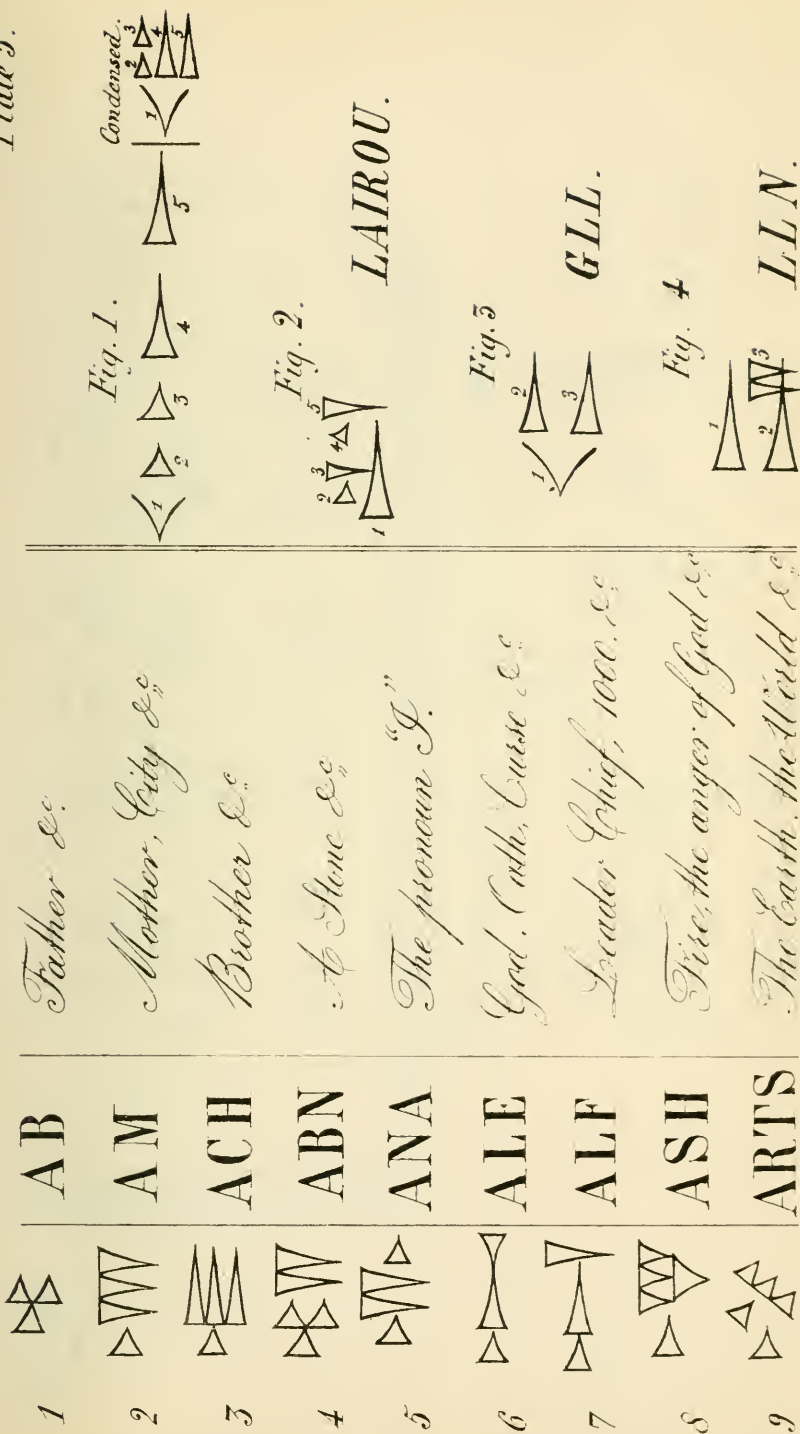 Plate 5.
1 AB Father &c.
2 AM Mother, City &c
3 ACH Brother &c
4 ABN A Stone &c
5 ANA The pronoun "I."
6 ALE God. Oath, Curse &c
7 ALF Leader Chief, 1000. &c
8 ASH Fire, the anger of God &c
9 ARTS The Earth, the World &c
Fig. 1.
Condensed.
1 2 3 4 5 1 2 3 4 5
Fig. 2.
1 2 3 4 5
LAIROU.
Fig. 3
1 2 3
GLL.
Fig. 4
1 2 3
LLN.